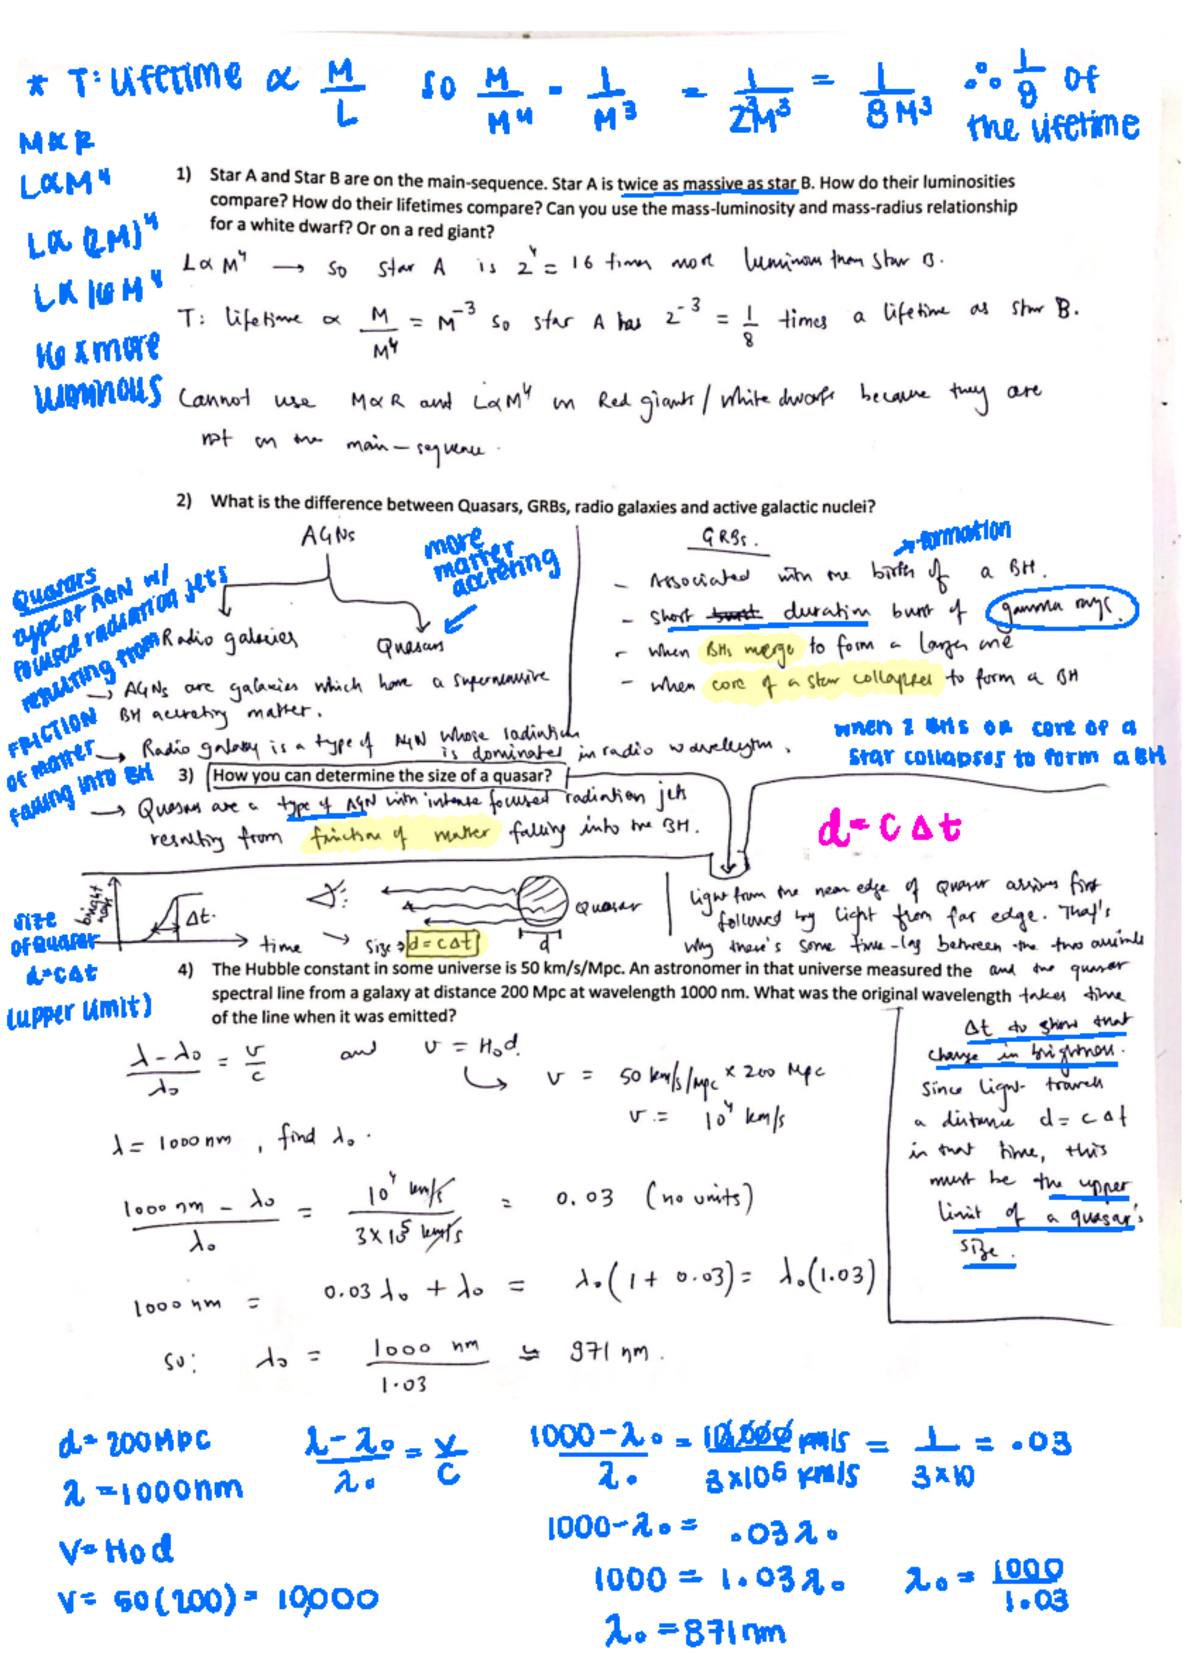 * T: Lifetime ∝ M/L so M/M⁴ = 1/M³ = 1/2³M³ = 1/8M³ ∴ 1/8 of the lifetime
M∝R
L∝M⁴
L∝(2M)⁴
L∝16M⁴
16x more
luminous
1) Star A and Star B are on the main-sequence. Star A is twice as massive as star B. How do their luminosities
compare? How do their lifetimes compare? Can you use the mass-luminosity and mass-radius relationship
for a white dwarf? Or on a red giant?
L∝M⁴ → so star A is 2⁴ = 16 times more luminous than star B.
T: lifetime ∝ M/M⁴ = M⁻³ so star A has 2⁻³ = 1/8 times a lifetime as star B.
Cannot use M∝R and L∝M⁴ on Red giants/white dwarfs because they are
not on the main-sequence.
2) What is the difference between Quasars, GRBs, radio galaxies and active galactic nuclei?
AGNs
more
matter
accreting
Radio galaxies
Quasars
Quasars
type of AGN w/
focused radiation jets
resulting from
FRICTION
of matter
falling into BH
→ AGNs are galaxies which have a supermassive
BH accreting matter.
→ Radio galaxy is a type of AGN whose radiation
is dominated in radio wavelength.
GRBs.
→ formation
- Associated with the birth of a BH.
- short burst duration burst of gamma rays.
- when BHs merge to form a larger one
- when core of a star collapses to form a BH
when 2 BHs or core of a
star collapses to form a BH
3) How you can determine the size of a quasar?
→ Quasars are a type of AGN with intense focused radiation jets
resulting from friction of matter falling into the BH.
d=cΔt
brightness
Δt.
time
Quasar
d
→ size → d=cΔt
size
of Quasar
d=cΔt
(upper limit)
Light from the near edge of Quasar arrives first
followed by light from far edge. That's
why there's some time-lag between the two arrivals
and the quasar
takes time
Δt to show that
change in brightness.
Since light travels
a distance d=cΔt
in that time, this
must be the upper
limit of a quasar's
size.
4) The Hubble constant in some universe is 50 km/s/Mpc. An astronomer in that universe measured the
spectral line from a galaxy at distance 200 Mpc at wavelength 1000 nm. What was the original wavelength
of the line when it was emitted?
λ-λ₀/λ₀ = v/c and v = H₀d.
↳ v = 50 km/s/Mpc × 200 Mpc
v = 10⁴ km/s
λ = 1000 nm, find λ₀.
1000 nm - λ₀/λ₀ = 10⁴ km/s/3×10⁵ km/s = 0.03 (no units)
1000 nm = 0.03λ₀ + λ₀ = λ₀(1+0.03) = λ₀(1.03)
so: λ₀ = 1000 nm/1.03 ≃ 971 nm.
d=200Mpc
λ=1000nm
V=H₀d
V= 50(200)= 10,000
λ-λ₀/λ₀ = V/C
1000-λ₀/λ₀ = 10,000 km/s/3×10⁵ km/s = 1/3×10 = .03
1000-λ₀ = .03λ₀
1000 = 1.03λ₀ λ₀ = 1000/1.03
λ₀ = 871nm